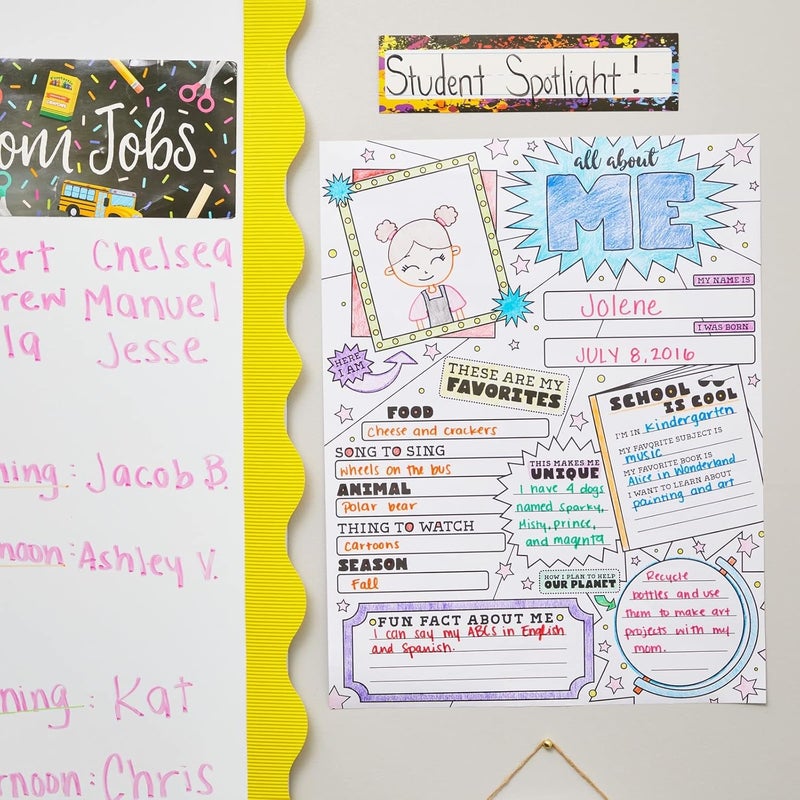 Jobs
Chelsea
Manuel
Jesse
Jacob B.
Ashley V.
Kat
Chris
Student Spotlight!
all about
ME
MY NAME IS
Jolene
I WAS BORN
JULY 8, 2016
HERE
I AM
THESE ARE MY
FAVORITES
FOOD
Cheese and crackers
SONG TO SING
Wheels on the bus
ANIMAL
Polar bear
THING TO WATCH
Cartoons
SEASON
Fall
THIS MAKES ME
UNIQUE
I have 4 dogs
named Sparky,
Misty, Prince,
and magenta
SCHOOL
IS COOL
I'M IN Kindergarten
MY FAVORITE SUBJECT IS
MUSIC
MY FAVORITE BOOK IS
Alice in Wonderland
I WANT TO LEARN ABOUT
painting and art
HOW I PLAN TO HELP
OUR PLANET
Recycle
bottles and use
them to make art
projects with my
mom.
FUN FACT ABOUT ME
I can say my ABCS in English
and Spanish.